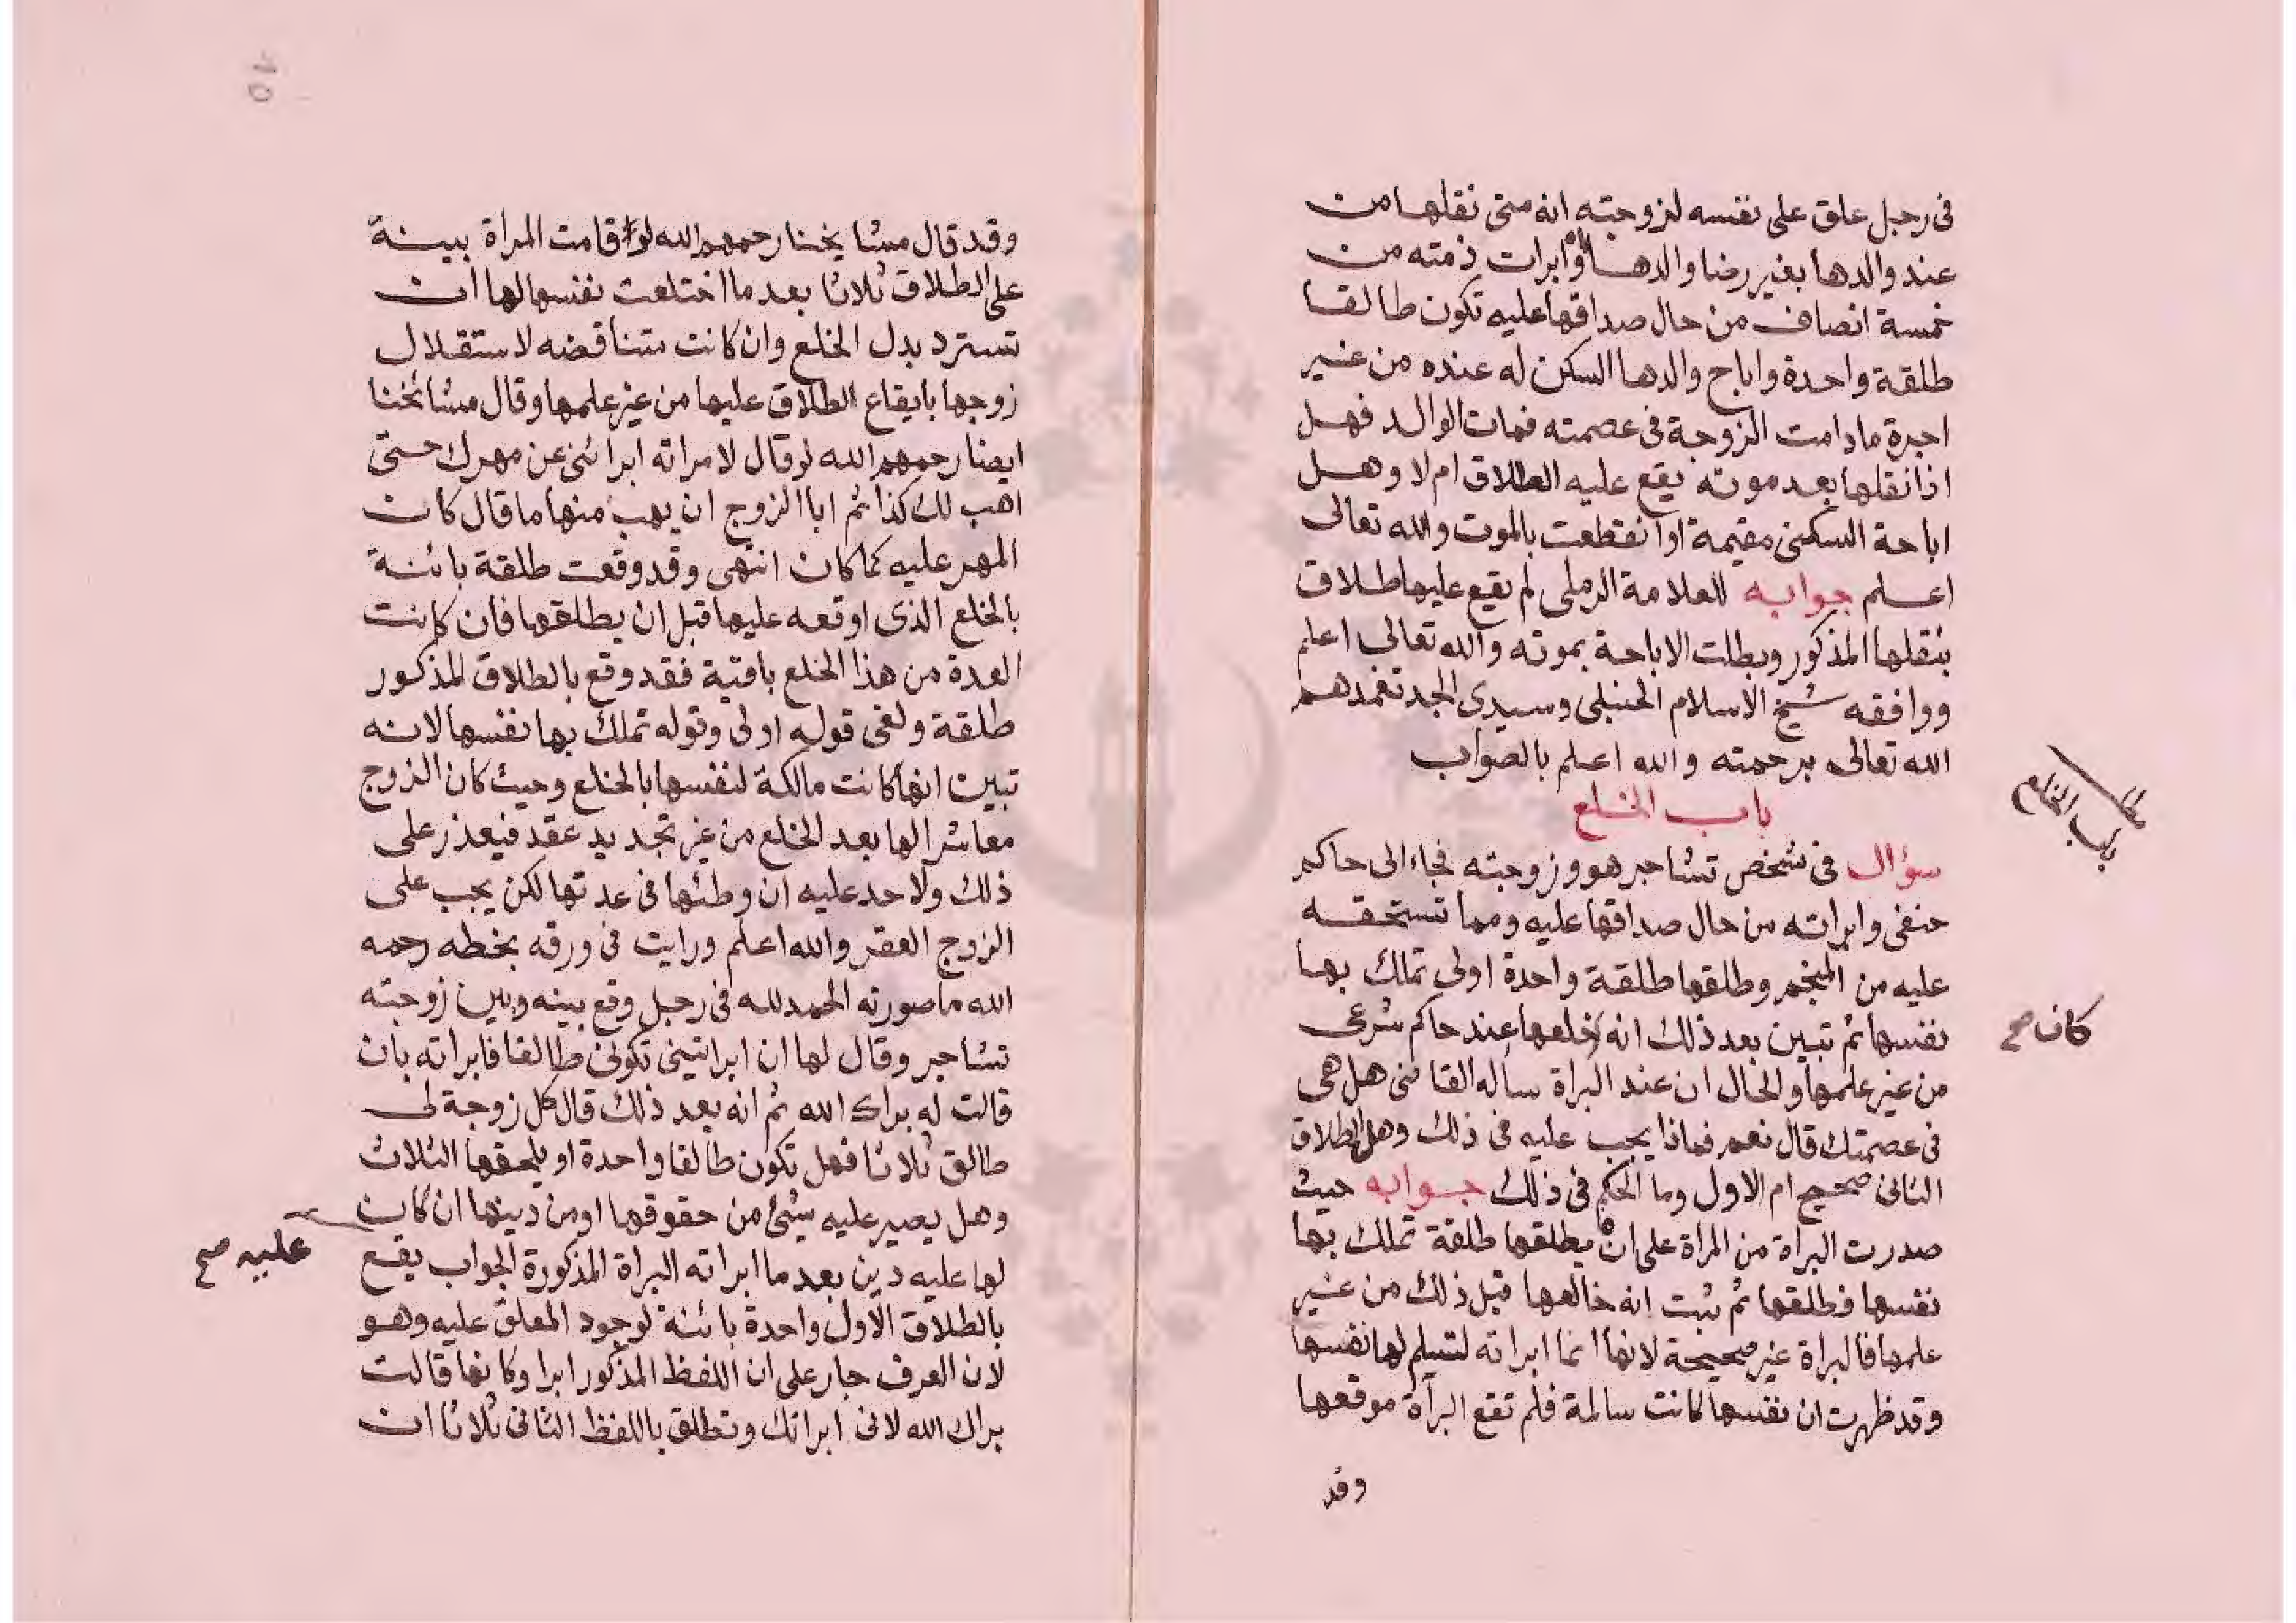 فى رجل علق على نفسه لزوجته انه متى نقلها من
عند والدها بغير رضا والدها وابرات ذمته من
خمسة انصاف من حال صداقها عليه تكون طالقا
طلقة واحدة واباح والدها السكن له عنده من غير
اجرة مادامت الزوجة فى عصمته فمات الوالد فهل
اذا نقلها بعد موته يقع عليه الطلاق ام لا وهل
اباحة السكنى مقيمة او انقطعت بالموت والله تعالى
اعلم جوابه للعلامة الرملى لم يقع عليها طلاق
بنقلها المذكور وبطلت الاباحة بموته والله تعالى اعلم
ووافقه شيخ الاسلام الحنبلى وسيدى الجد تغمدهم
الله تعالى برحمته والله اعلم بالصواب
باب الخلع
مط باب الخلع
سؤال فى شخص تشاجر هو وزوجته فجاء الى حاكم
حنفى وابراته من حال صداقها عليه ومما تستحقه
عليه من المنجم وطلقها طلقة واحدة اولى تملك بها
نفسها ثم تبين بعد ذلك انه خلعها عند حاكم شرعى
كان صح
من غير علمها والحال ان عند البراة ساله القاضى هل هى
فى عصمتك قال نعم فماذا يجب عليه فى ذلك وهل الطلاق
الثانى صحيح ام الاول وما الحكم فى ذلك جوابه حيث
صدرت البراة من المراة على ان يطلقها طلقة تملك بها
نفسها فطلقها ثم ثبت انه خالعها قبل ذلك من غير
علمها فالبراة غير صحيحة لانها انما ابراته لتسلم لها نفسها
وقد ظهرت ان نفسها كانت سالمة فلم تقع البرآة موقعها
وقد
10
وقد قال مشايخنا رحمهم الله لو قامت المراة ببينة
على الطلاق ثلاثا بعد ما اختلعت نفسها لها ان
تسترد بدل الخلع وان كانت متناقضه لاستقلال
زوجها بايقاع الطلاق عليها من غير علمها وقال مشائخنا
ايضا رحمهم الله لو قال لامراته ابرائنى عن مهرك حتى
اهب لك كذا ثم ابا الزوج ان يهب منها ما قال كان
المهر عليه كما كان انتهى وقد وقعت طلقة بائنة
بالخلع الذى اوقعه عليها قبل ان يطلقها فان كانت
العدة من هذا الخلع باقية فقد وقع بالطلاق المذكور
طلقة ولغى قوله اولى وقوله تملك بها نفسها لانه
تبين انها كانت مالكة لنفسها بالخلع وحيث كان الزوج
معاشرا لها بعد الخلع من غير تجديد عقد فيعذر على
ذلك ولا حد عليه ان وطئها فى عدتها لكن يجب على
الزوج العقر والله اعلم ورايت فى ورقه بخطه رحمه
الله ما صورته الحمد لله فى رجل وقع بينه وبين زوجته
تشاجر وقال لها ان ابراتينى تكونى طالقا فابراته بان
قالت له براك الله ثم انه بعد ذلك قال كل زوجة لى
طالق ثلاثا فهل تكون طالقا واحدة او يلحقها الثلاث
وهل يصير عليه شئ من حقوقها او من دينها ان كان
عليه صح
لها عليه دين بعد ما ابراته البراة المذكورة الجواب يقع
بالطلاق الاول واحدة بائنة لوجود المعلق عليه وهو
لان العرف جار على ان اللفظ المذكور ابرا وكانها قالت
براك الله لانى ابراتك وتطلق باللفظ الثانى ثلاثا ان